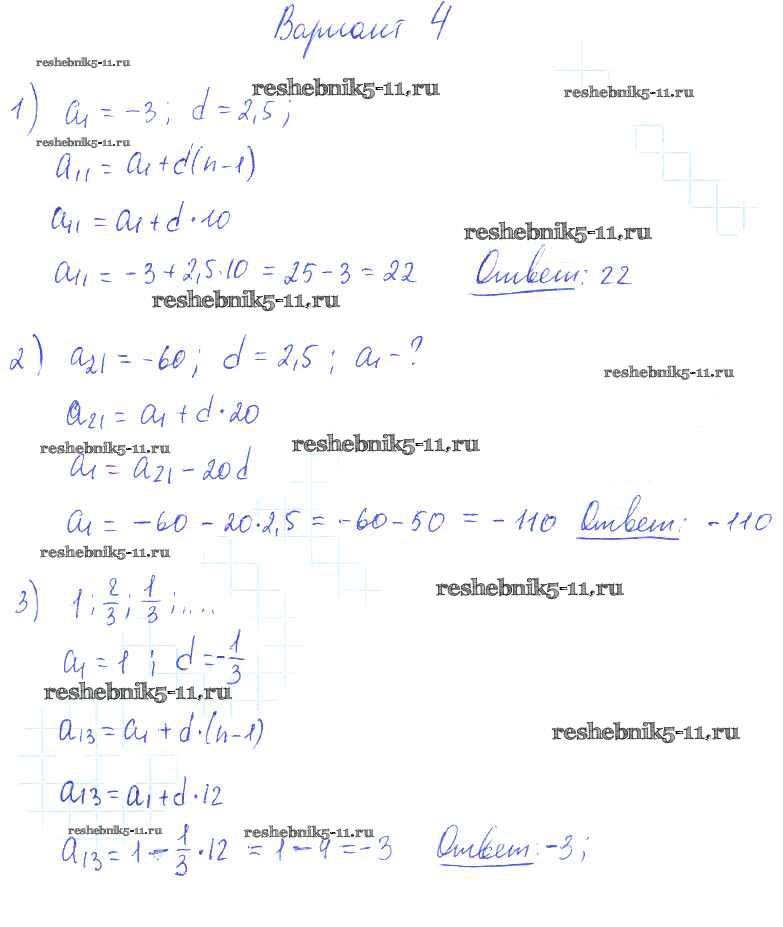 Вариант 4
reshebnik5-11.ru
reshebnik5-11.ru
reshebnik5-11.ru
1) a₁ = -3; d = 2,5;
reshebnik5-11.ru
a₁₁ = a₁ + d(n-1)
a₁₁ = a₁ + d·10
reshebnik5-11.ru
a₁₁ = -3 + 2,5·10 = 25 - 3 = 22 Ответ: 22
reshebnik5-11.ru
2) a₂₁ = -60; d = 2,5; a₁ - ?
reshebnik5-11.ru
a₂₁ = a₁ + d·20
reshebnik5-11.ru
reshebnik5-11.ru
a₁ = a₂₁ - 20d
a₁ = -60 - 20·2,5 = -60 - 50 = -110 Ответ: -110
reshebnik5-11.ru
reshebnik5-11.ru
3) 1; 2/3; 1/3; ....
a₁ = 1; d = -1/3
reshebnik5-11.ru
a₁₃ = a₁ + d·(n-1)
reshebnik5-11.ru
a₁₃ = a₁ + d·12
reshebnik5-11.ru
reshebnik5-11.ru
a₁₃ = 1 - 1/3·12 = 1 - 4 = -3 Ответ: -3;